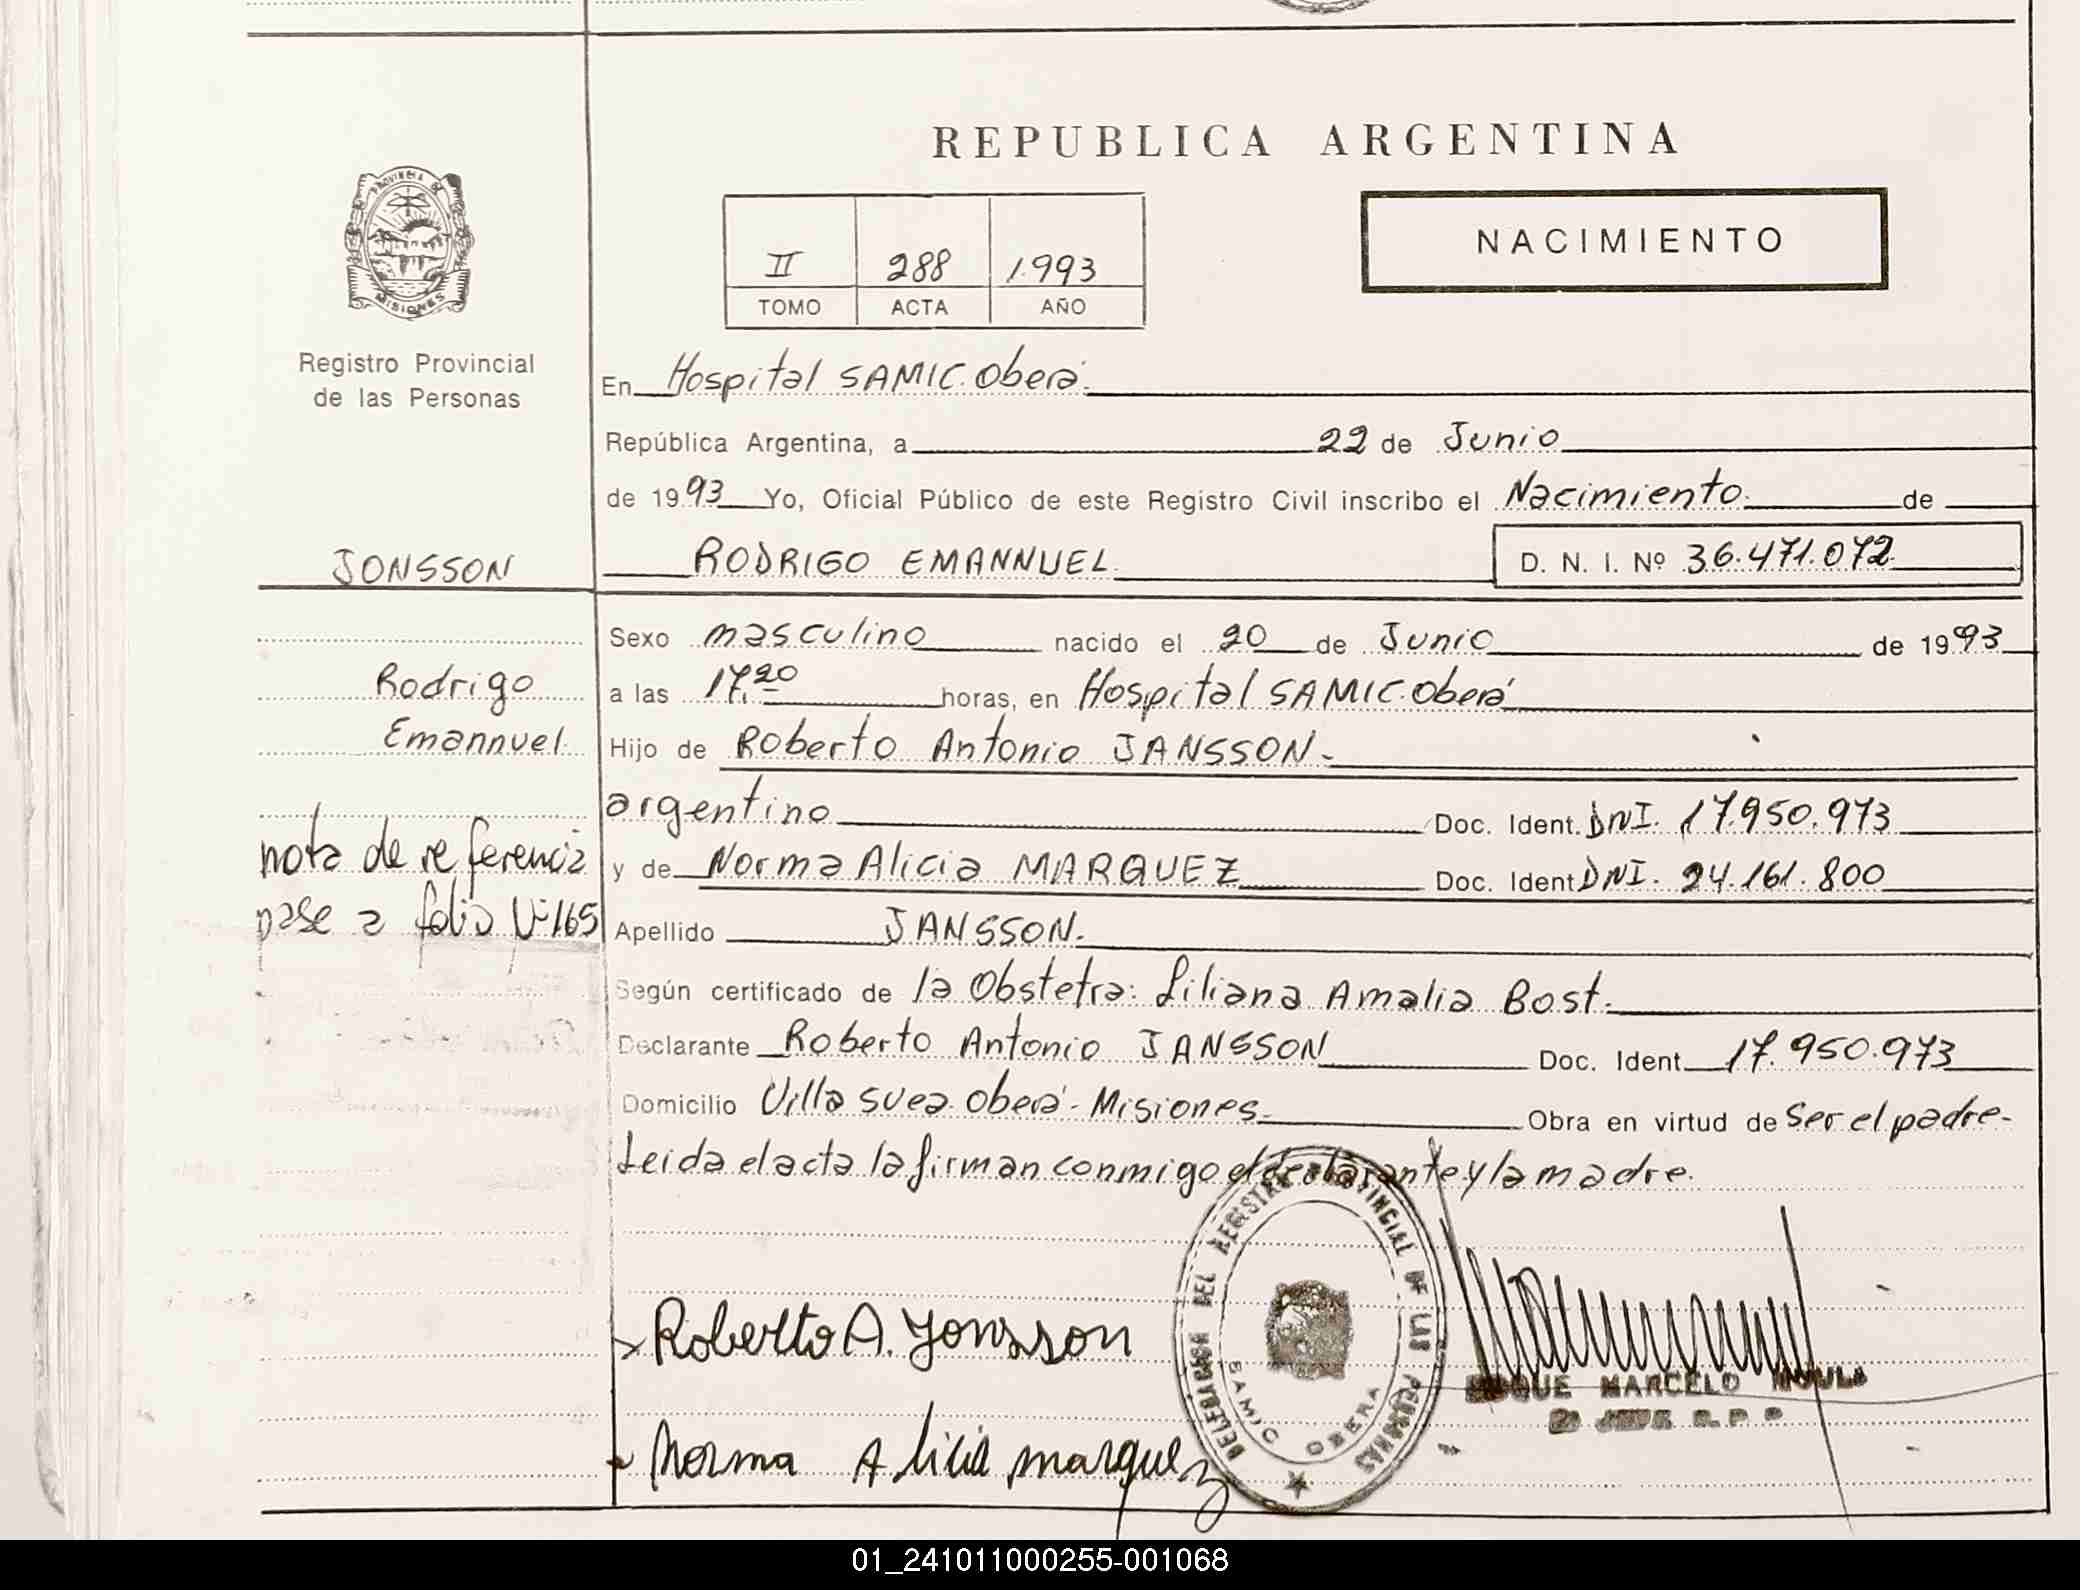 REPUBLICA ARGENTINA
NACIMIENTO
II 288 1.993
TOMO ACTA AÑO
PROVINCIA DE
MISIONES
Registro Provincial
de las Personas
En Hospital SAMIC. Oberá.
República Argentina, a 22 de Junio
de 1993 Yo, Oficial Público de este Registro Civil inscribo el Nacimiento. de
JONSSON
RODRIGO EMANNUEL. D. N. I. Nº 36.471.072
Sexo masculino nacido el 20 de Junio de 1993
Rodrigo
Emannuel.
a las 17,20 horas, en Hospital SAMIC. Oberá
Hijo de Roberto Antonio JANSSON.-
argentino Doc. Ident. DNI. 17.950.973
nota de referencia
pase a folio Nº 165
y de Norma Alicia MARQUEZ Doc. Ident DNI. 24.161.800
Apellido JANSSON.
Según certificado de la Obstetra: Liliana Amalia Bost.
Declarante Roberto Antonio JANSSON Doc. Ident. 17.950.973
Domicilio Villa suea. Oberá - Misiones. Obra en virtud de Ser el padre-
Leida el acta la firman conmigo el declarante y la madre.
DELEGACION DEL REGISTRO PROVINCIAL DE LAS PERSONAS
SAMIC OBERA
Roberto A. Jonsson
ROQUE MARCELO
Norma Alicia marquez
01_241011000255-001068